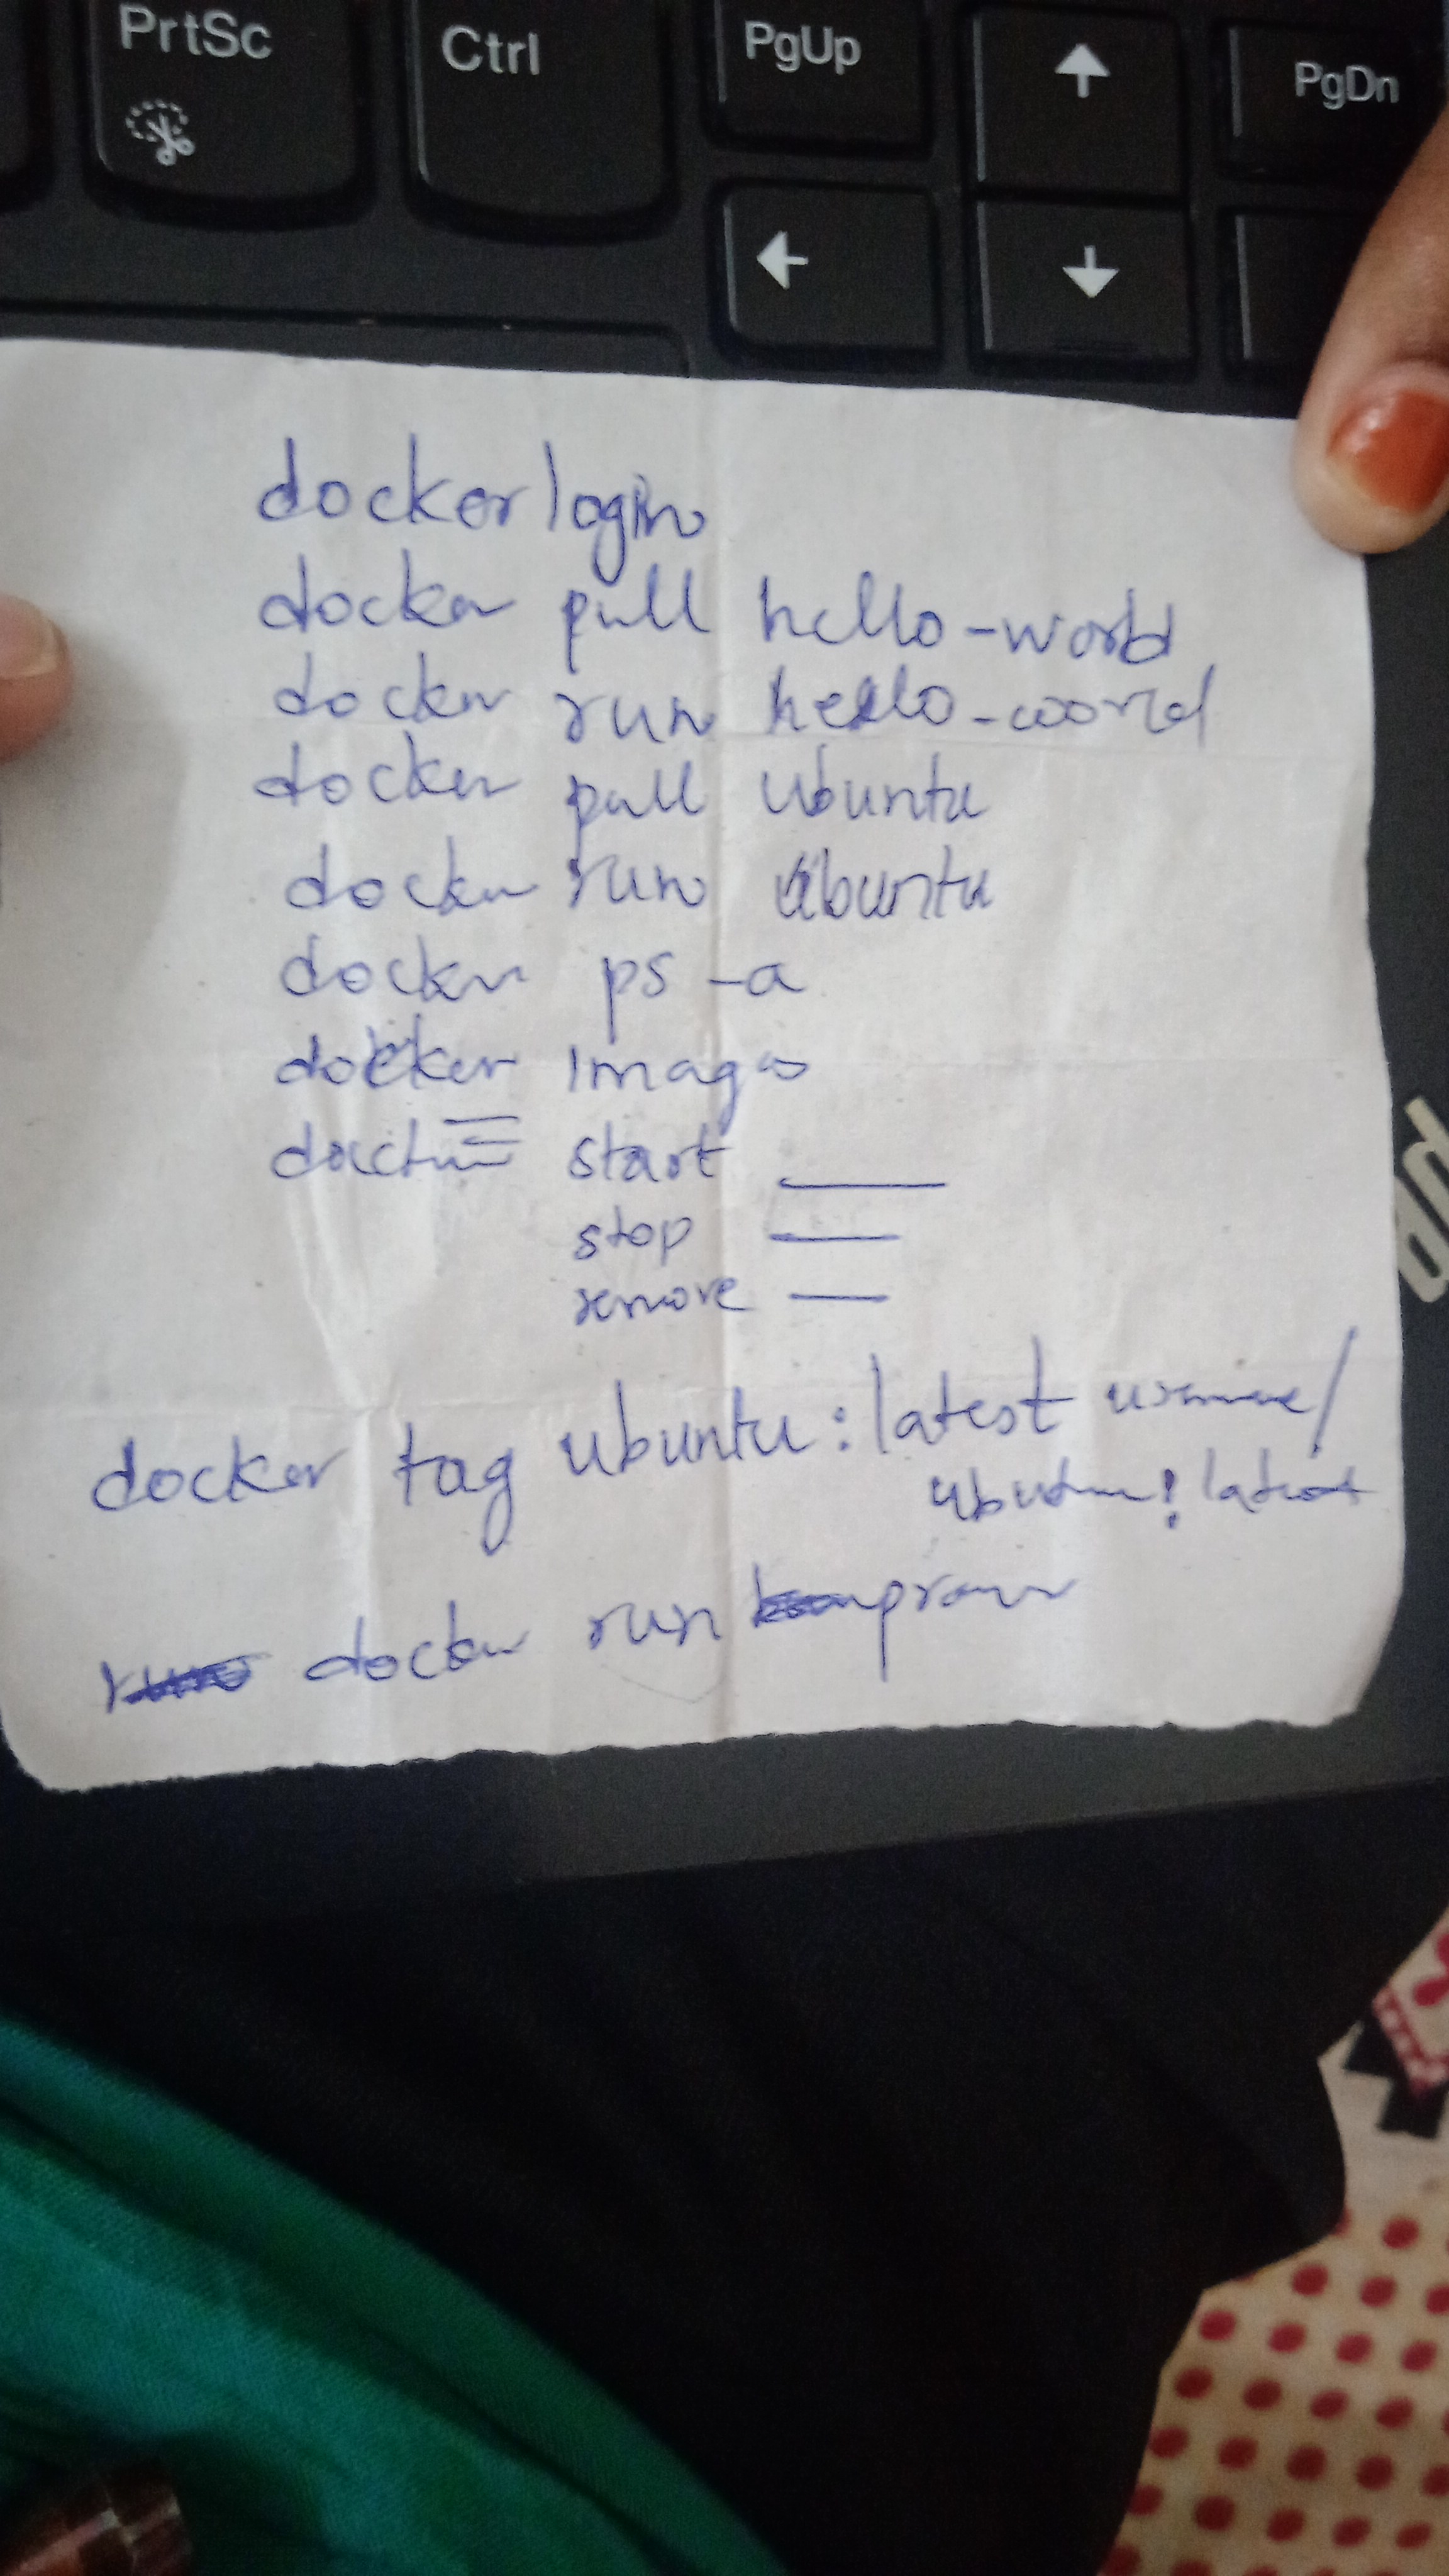 PrtSc Ctrl PgUp PgDn
docker login
docker pull hello-world
docker run hello-world
docker pull ubuntu
docker run ubuntu
docker ps -a
docker images
docker start
stop
remove
docker tag ubuntu:latest username/
ubuntu:latest
docker run